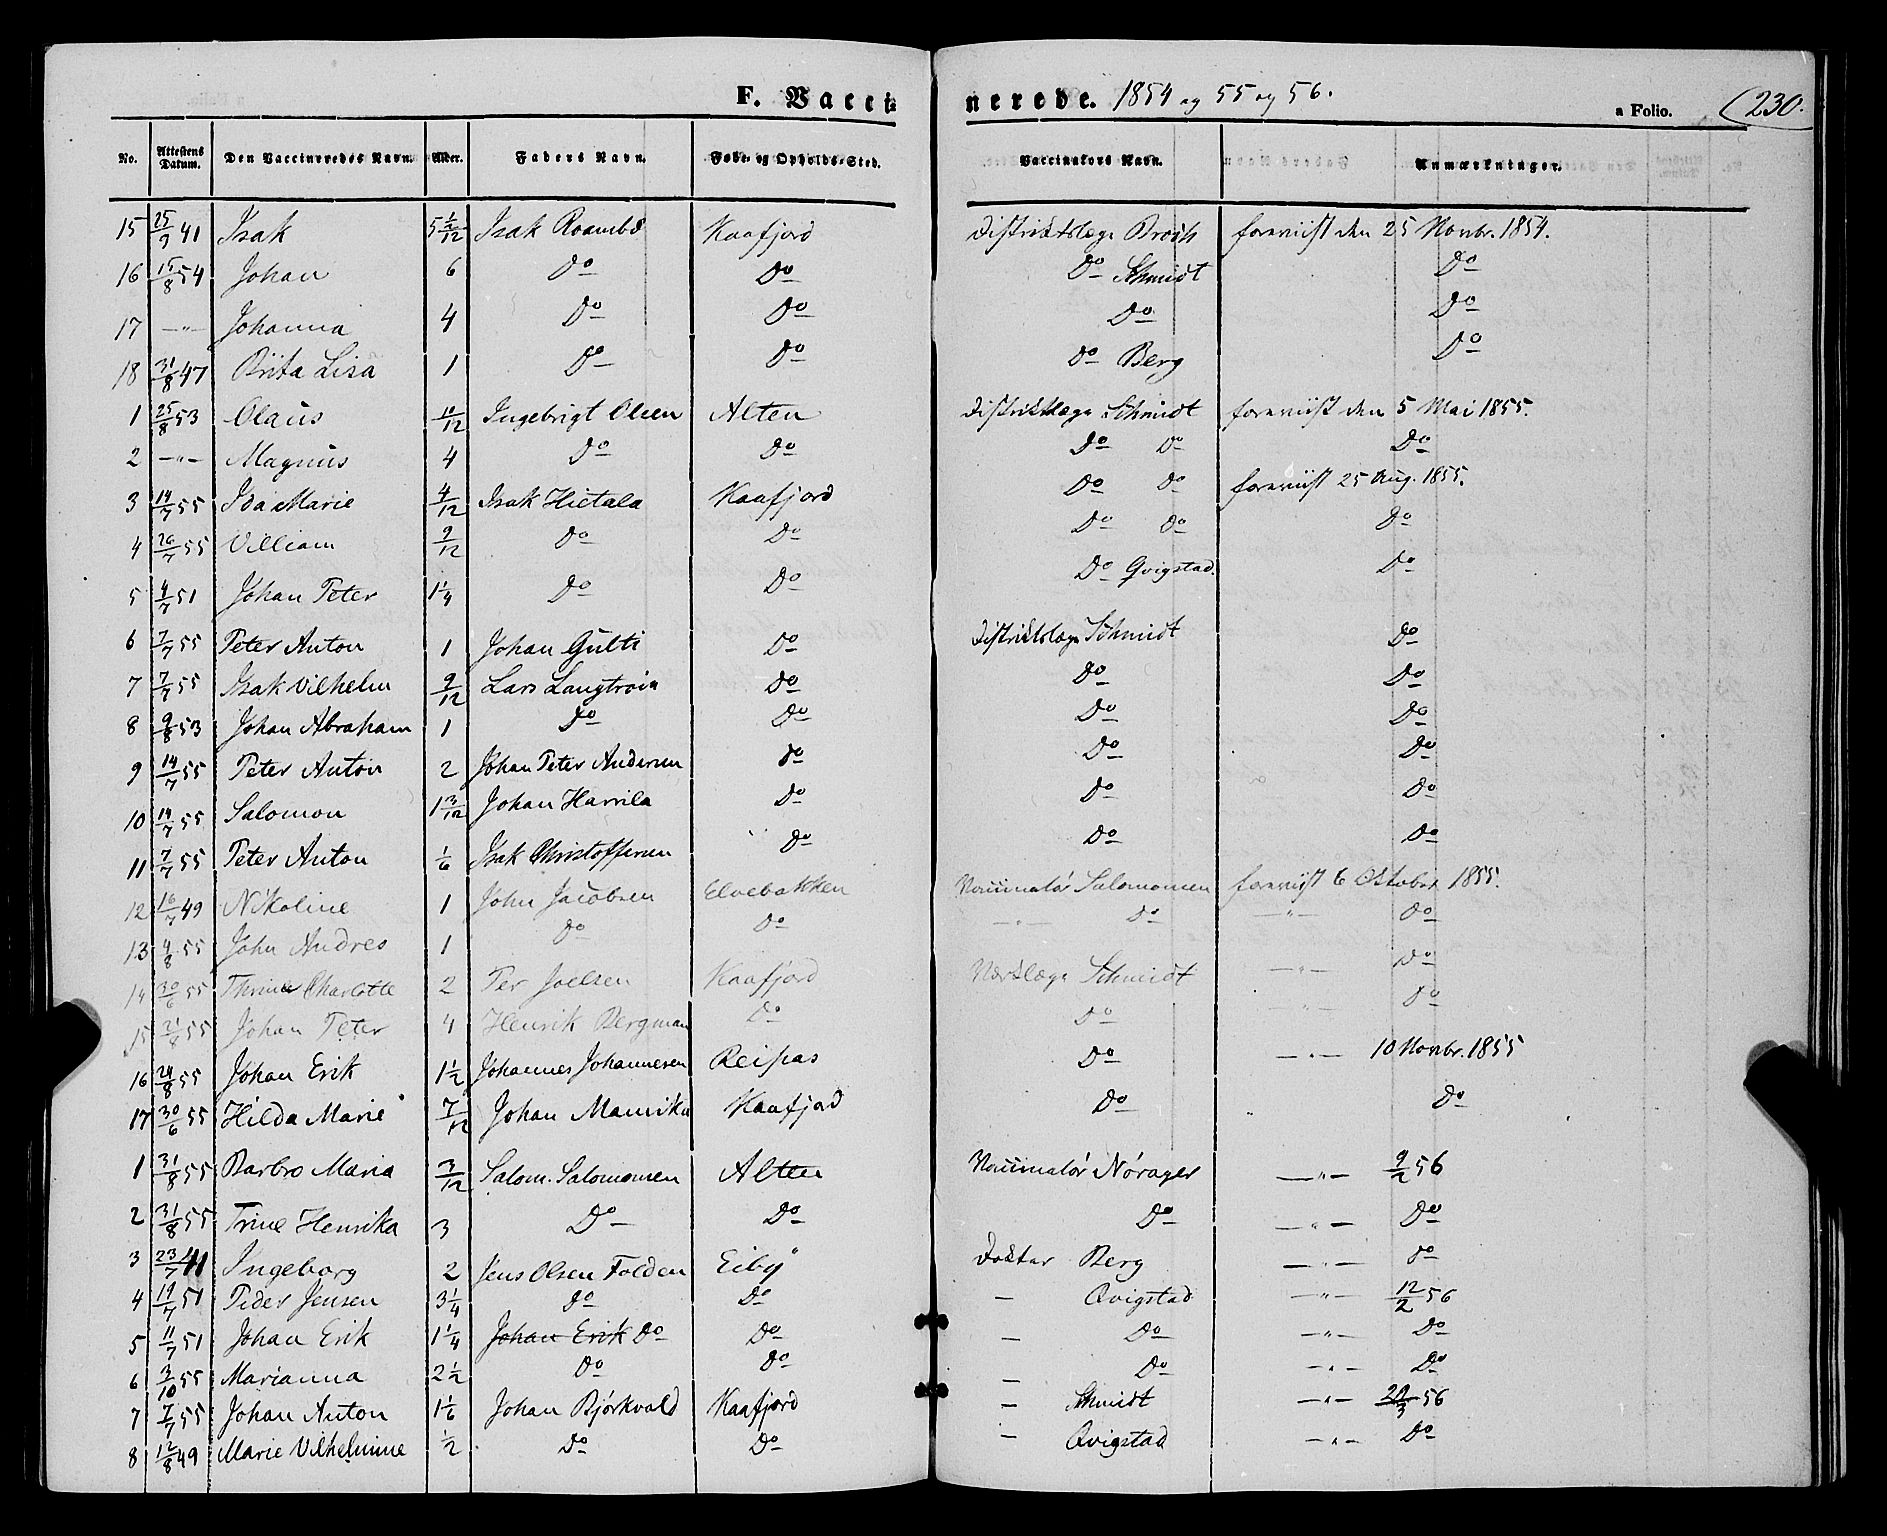 F. Vacci- nerede. 1854 og 55 og 56. a Folio. 230.
No. Attestens Datum. Den Vaccineredes Navn. Alder. Faders Navn. Føde- og Opholds-Sted. Vaccinators Navn. Anmærkninger.
15 25/9 41 Isak 5 Isak Kaafjord Distriktslæge foreviist den 25 Novbr. 1854.
16 15/8 54 Johan 6 Do Do Do Schmidt Do
17 —"— Johanna 4 Do Do Do Do
18 31/8 47 Brita Lisa 1 Do Do Do Berg Do
1 25/8 53 Olaus 10/12 Ingebrigt Olsen Alten Distriktslæge Schmidt foreviist den 5 Mai 1855.
2 —"— Magnus 4 Do Do Do Do Do
3 14/7 55 Ida Marie 4/12 Isak Hietala Kaafjord Do Do foreviist 25 Aug. 1855.
4 26/7 55 Villiam 9/12 Do Do Do Do Do
5 4/7 51 Johan Peter 1 1/4 Do Do Do Qvigstad. Do
6 7/7 55 Peter Anton 1 Johan Gulti Do Distriktslæge Schmidt Do
7 7/7 55 Isak Vilhelm 9/12 Lars Do Do Do
8 9/8 53 Johan Abraham 1 Do Do Do Do
9 14/7 55 Peter Anton 2 Johan Peter Andersen Do Do Do
10 14/7 55 Salomon 1 3/12 Johan Harrila Do Do Do
11 7/7 55 Peter Anton 1/6 Isak Christoffersen Do Do Do
12 16/7 49 Nikoline 1 John Jacobsen Elvebakken Vaccinatør Salomonsen foreviist 6 Oktober 1855.
13 4/8 55 John Andres 1 Do Do —"— Do —"— Do
14 30/6 55 Thrine Charlotte 2 Per Joelsen Kaafjord Schmidt —"— Do
15 21/8 55 Johan Peter 4 Henrik Bergman Do Do —"— Do
16 24/8 55 Johan Erik 1 1/2 Johannes Johannesen Reipas Do —"— 10 Novbr. 1855
17 30/6 55 Hilda Marie 7/12 Johan Kaafjord Do Do
1 31/8 55 Barbro Maria 3/12 Salom. Salomonsen Alten Vaccinatør Nørager —"— 9/2 56
2 31/8 55 Trine Henrika 3 Do Do Do —"— Do
3 23/7 41 Ingeborg 2 Jens Olsen Folden Eiby Doktor Berg —"— Do
4 19/7 51 Peder Jensen 3 1/4 Do Do — Qvigstad —"— 12/2 56
5 11/7 51 Johan Erik 1 1/4 Johan Erik Do Do — Do —"— Do
6 3/10 55 Marianna 2 1/2 Do Do — Do —"— Do
7 7/7 55 Johan Anton 1 1/6 Johan Bjørkvald Kaafjord — Schmidt —"— 56
8 12/8 49 Marie Vilhelmine 1/2 Do Do — Qvigstad —"— Do